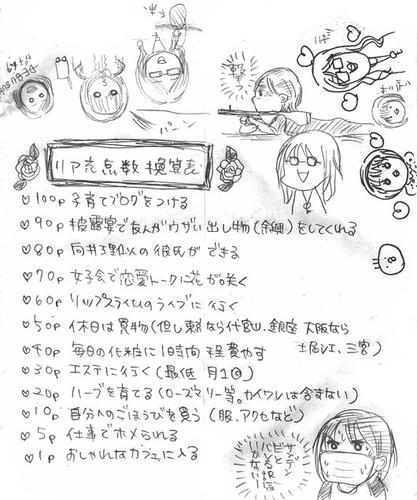 撃つ
パーン
リア充点数換算表
♡100p 子育てブログをつける
♡90p 披露宴で友人がウザい出し物(余興)をしてくれる
♡80p 向井理似の彼氏ができる
♡70p 女子会で恋愛トークに花が咲く
♡60p リップスライムのライブに行く
♡50p 休日は買物(但し東京なら代官山、銀座 大阪なら
♡40p 毎日の化粧に1時間程費やす
♡30p エステに行く(最低 月1回)
♡20p ハーブを育てる(ローズマリー等。カイワレは含まない)
♡10p 自分へのごほうびを買う(服、アクセなど)
♡5p 仕事でホメられる
♡1p おしゃれなカフェに入る